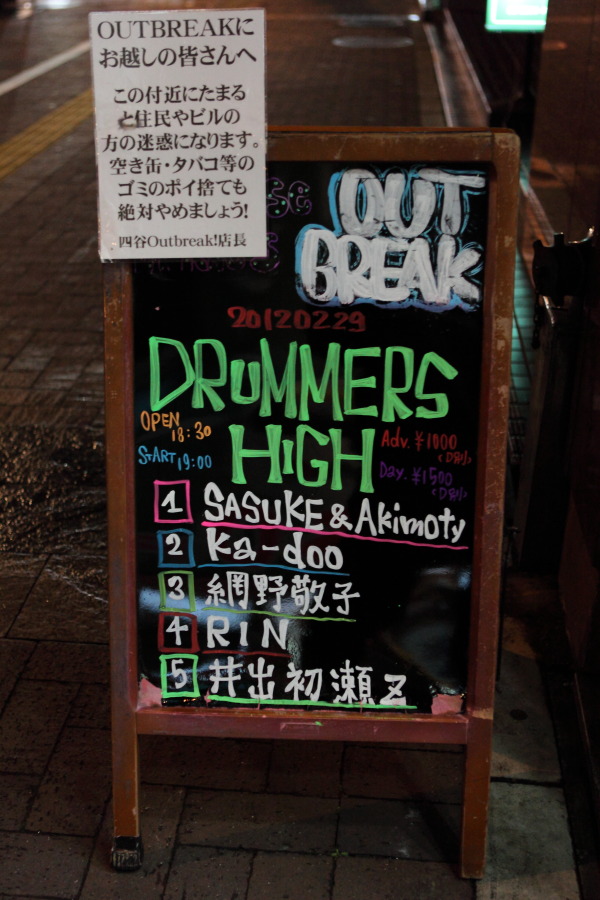 OUTBREAKに
お越しの皆さんへ
この付近にたまる
と住民やビルの
方の迷惑になります。
空き缶・タバコ等の
ゴミのポイ捨ても
絶対やめましょう!
四谷Outbreak!店長
OUT
BREAK
20120229
DRUMMERS
HIGH
OPEN
18:30
START 19:00
Adv. ¥1000
<D別>
Day. ¥1500
<D別>
1 SASUKE & Akimoty
2 Ka-doo
3 網野敬子
4 RIN
5 井出初瀬Z